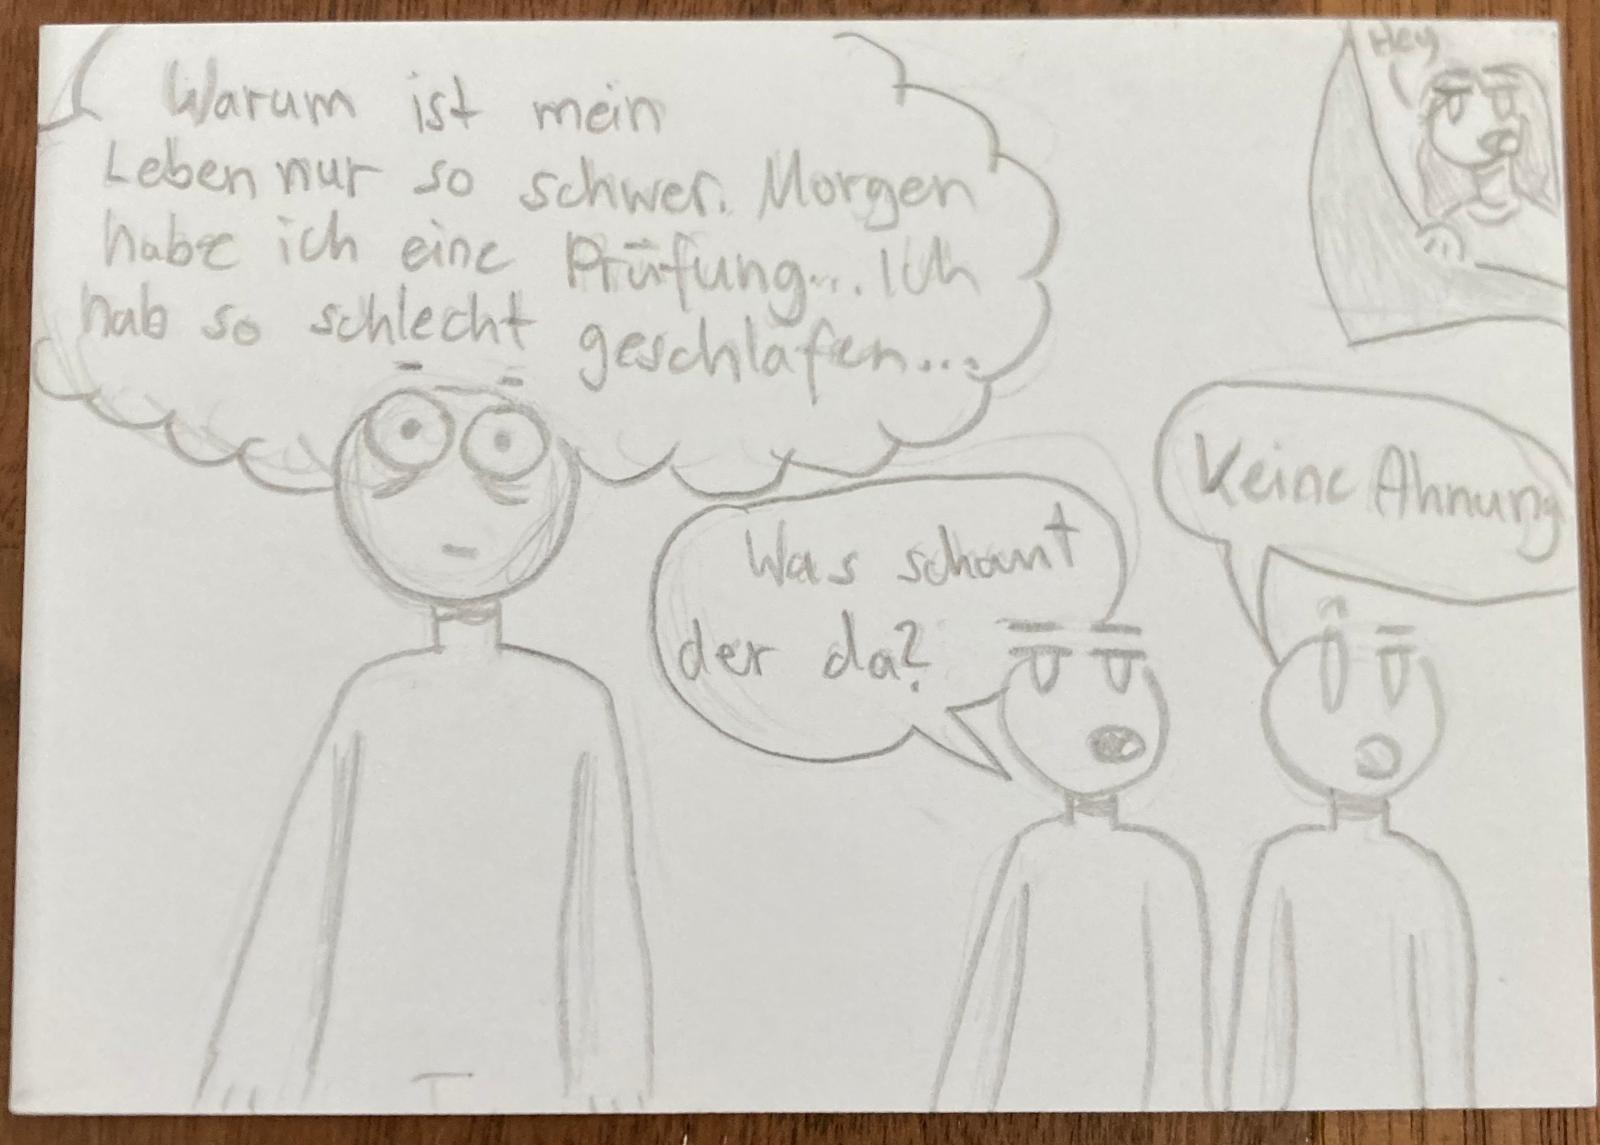 Warum ist mein
Leben nur so schwer. Morgen
habe ich eine Prüfung... Ich
hab so schlecht geschlafen...
Hey
Was schaut
der da?
Keine Ahnung